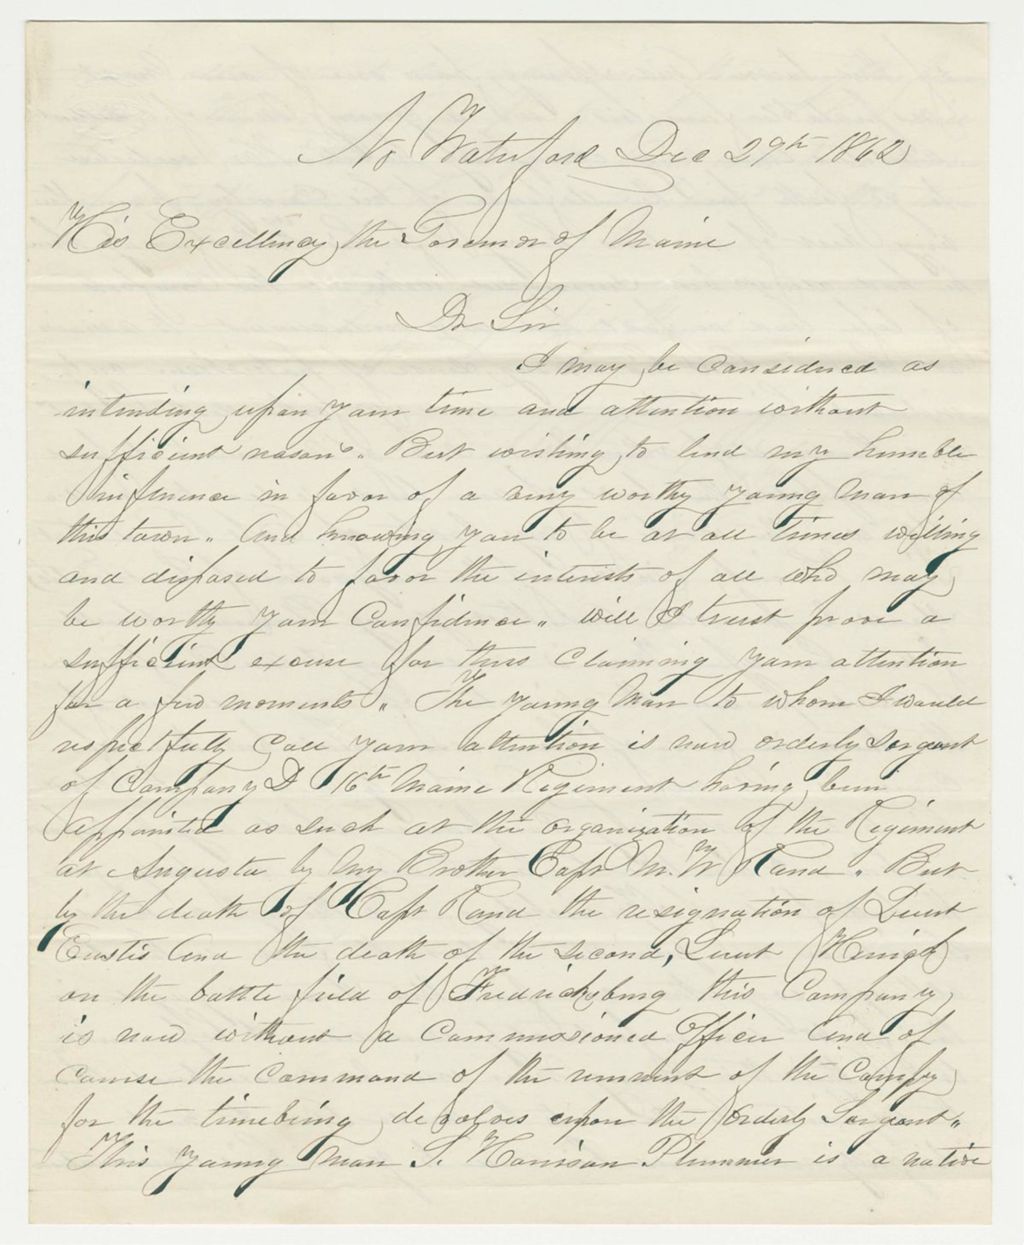 No Waterford Dec 29th 1862
His Excellency the Governor of Maine
Dr Sir
I may be considered as
intruding upon your time and attention without
sufficient reason". But wishing to lend my humble
influence in favor of a very worthy young man of
this town" And knowing you to be at all times willing
and disposed to favor the interests of all who may
be worthy your confidence" will I trust prove a
sufficient excuse for thus claiming your attention
for a few moments" The young man to whom I would
respectfully call your attention is now orderly Sergant
of Company D 16th Maine Regiment having been
appointed as such at the organization of the Regiment
at Augusta by my Brother Capt M. W Rand" But
by the death of Capt Rand the resignation of Lieut
Eustis and the death of the second, Lieut
on the battle field of Fredricksburg this Company
is now without a Commissioned Officer and of
course the command of the remnant of the Compy
for the timebeing devolves upon the orderly Sergeant"
This young man S. Harrison Plummer is a native